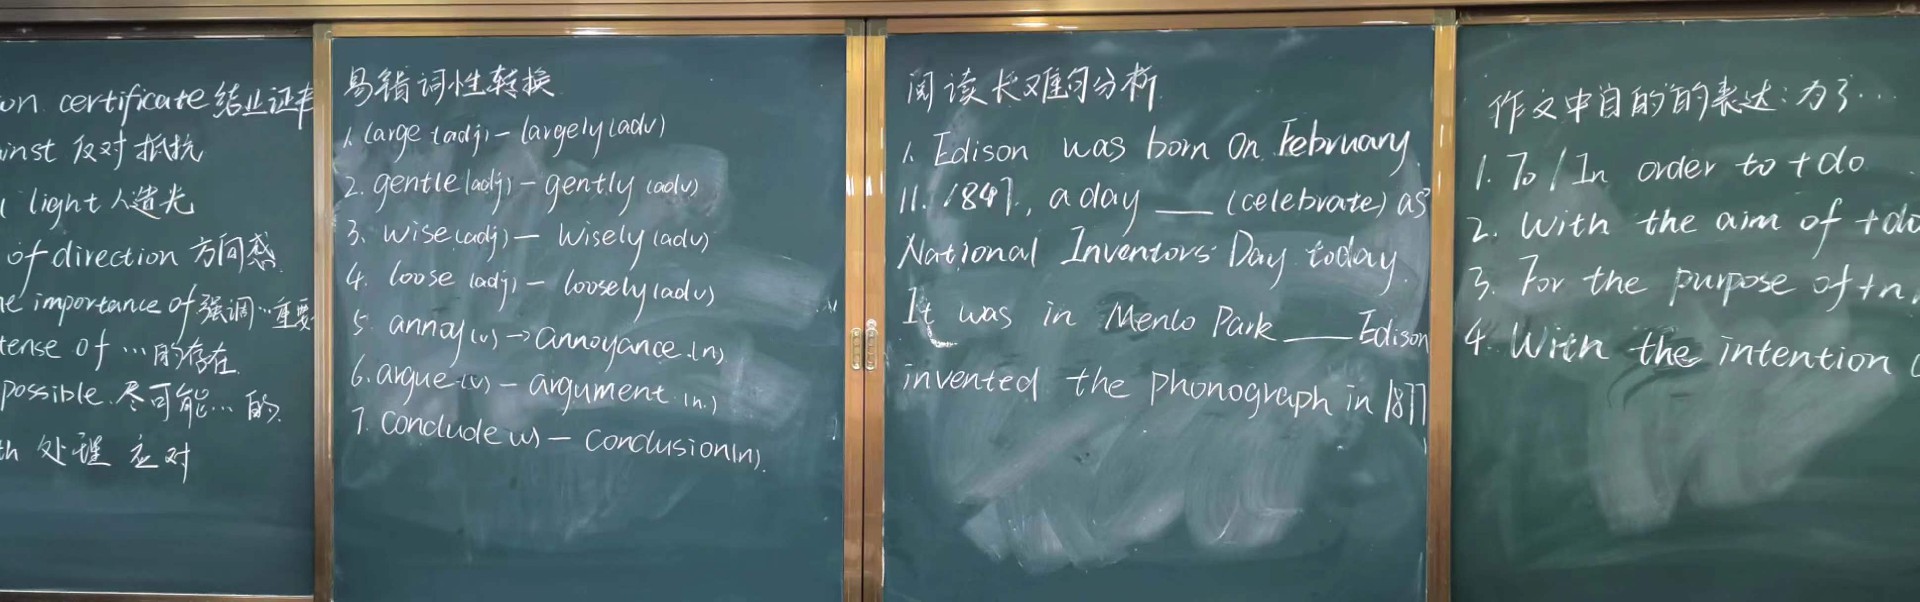 certificate 结业证书
反对 抵抗
light 人造光
of direction 方向感
importance of 强调…重要
of …的存在
possible. 尽可能…的.
处理 应对
易错词性转换
1. large (adj) - largely (adv)
2. gentle (adj) - gently (adv)
3. wise (adj) - wisely (adv)
4. loose (adj) - loosely (adv)
5. annoy (v) → annoyance. (n)
6. argue (v) - argument. (n.)
7. conclude (v) - conclusion (n).
阅读长难句分析.
1. Edison was born on February
11. 1847, a day ___ (celebrate) as
National Inventors' Day today.
It was in Menlo Park ___ Edison
invented the phonograph in 1877
作文中目的的表达: 为了…
1. To / In order to + do
2. With the aim of + do
3. For the purpose of + n.
4. With the intention